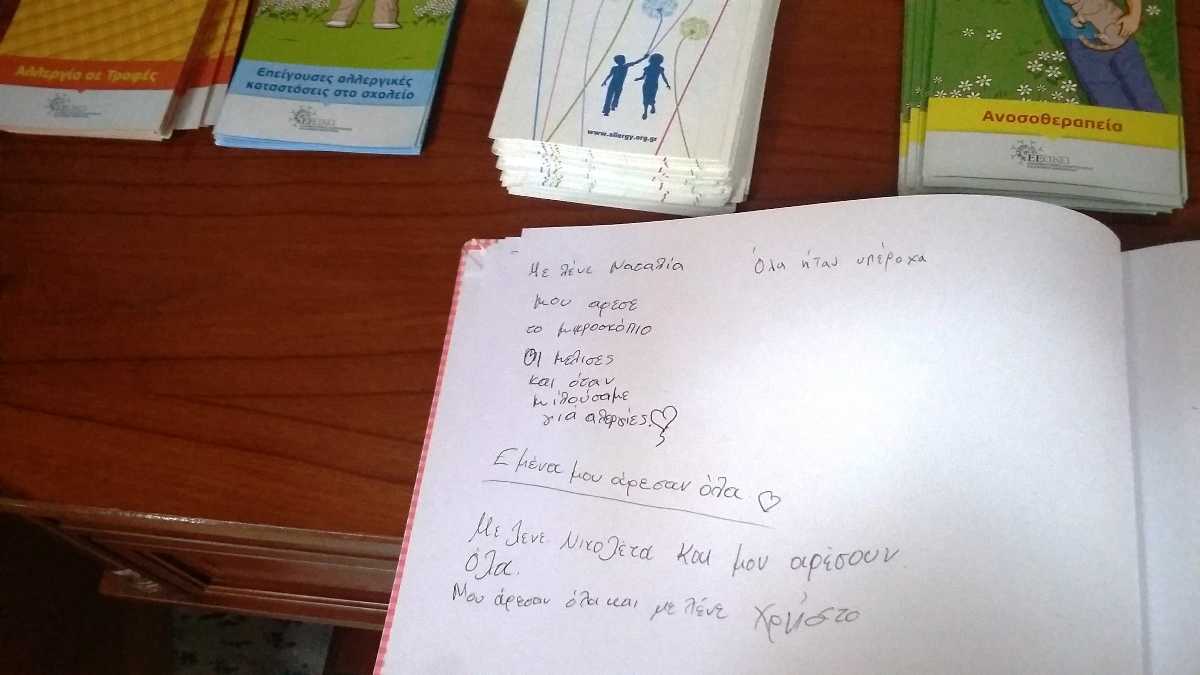 Αλλεργία σε Τροφές
Επείγουσες αλλεργικές
καταστάσεις στο σχολείο
www.allergy.org.gr
Ανοσοθεραπεία
ΕΕΟΙΚΕΙ
Με λένε Ναταλία
Όλα ήταν υπέροχα
μου αρεσε
το μικροσκόπιο
Οι μελισες
και όταν
μιλούσαμε
γιά αλεργίες
Εμένα μου άρεσαν όλα
Με λενε Νικολέτα και μου αρέσουν
όλα.
Μου άρεσαν όλα και με λένε Χρήστο